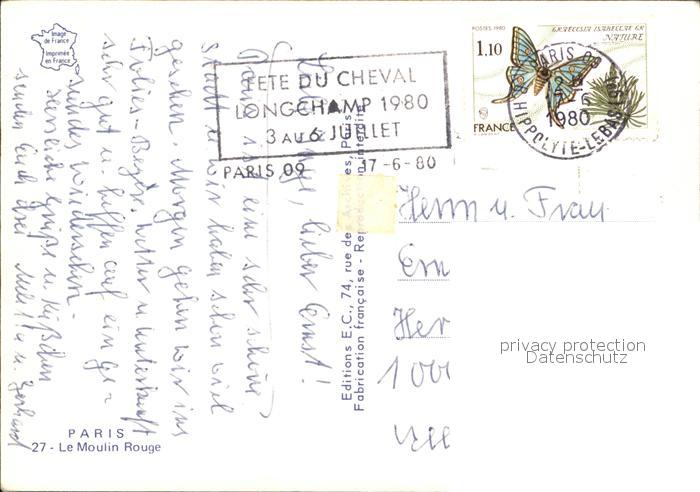 Image
de France
Imprimée
en France
FETE DU CHEVAL
LONGCHAMP 1980
3 AU 6 JUILLET
PARIS 09
17-6-80
POSTES 1980
GRAELLSIA ISABELLAE GR
NATURE
1,10
FRANCE
PARIS
1980
HIPPOLYTE-LEBAS
lieber Ernst!
Paris ist eine sehr schöne
Stadt u. wir haben schon viel
gesehen. Morgen gehen wir ins
Folies-Bergère. Wetter u. Unterkunft
sehr gut u. hoffen auf ein ge-
sundes Wiedersehen.
Herzliche Grüße u. Küßchen
senden Euch Eure u. Gerhard
Editions E.C., 74, rue des Archives, Paris
Fabrication française - Reproduction interdite
Herrn u. Frau
Ern
Her
privacy protection
Datenschutz
PARIS
27 - Le Moulin Rouge